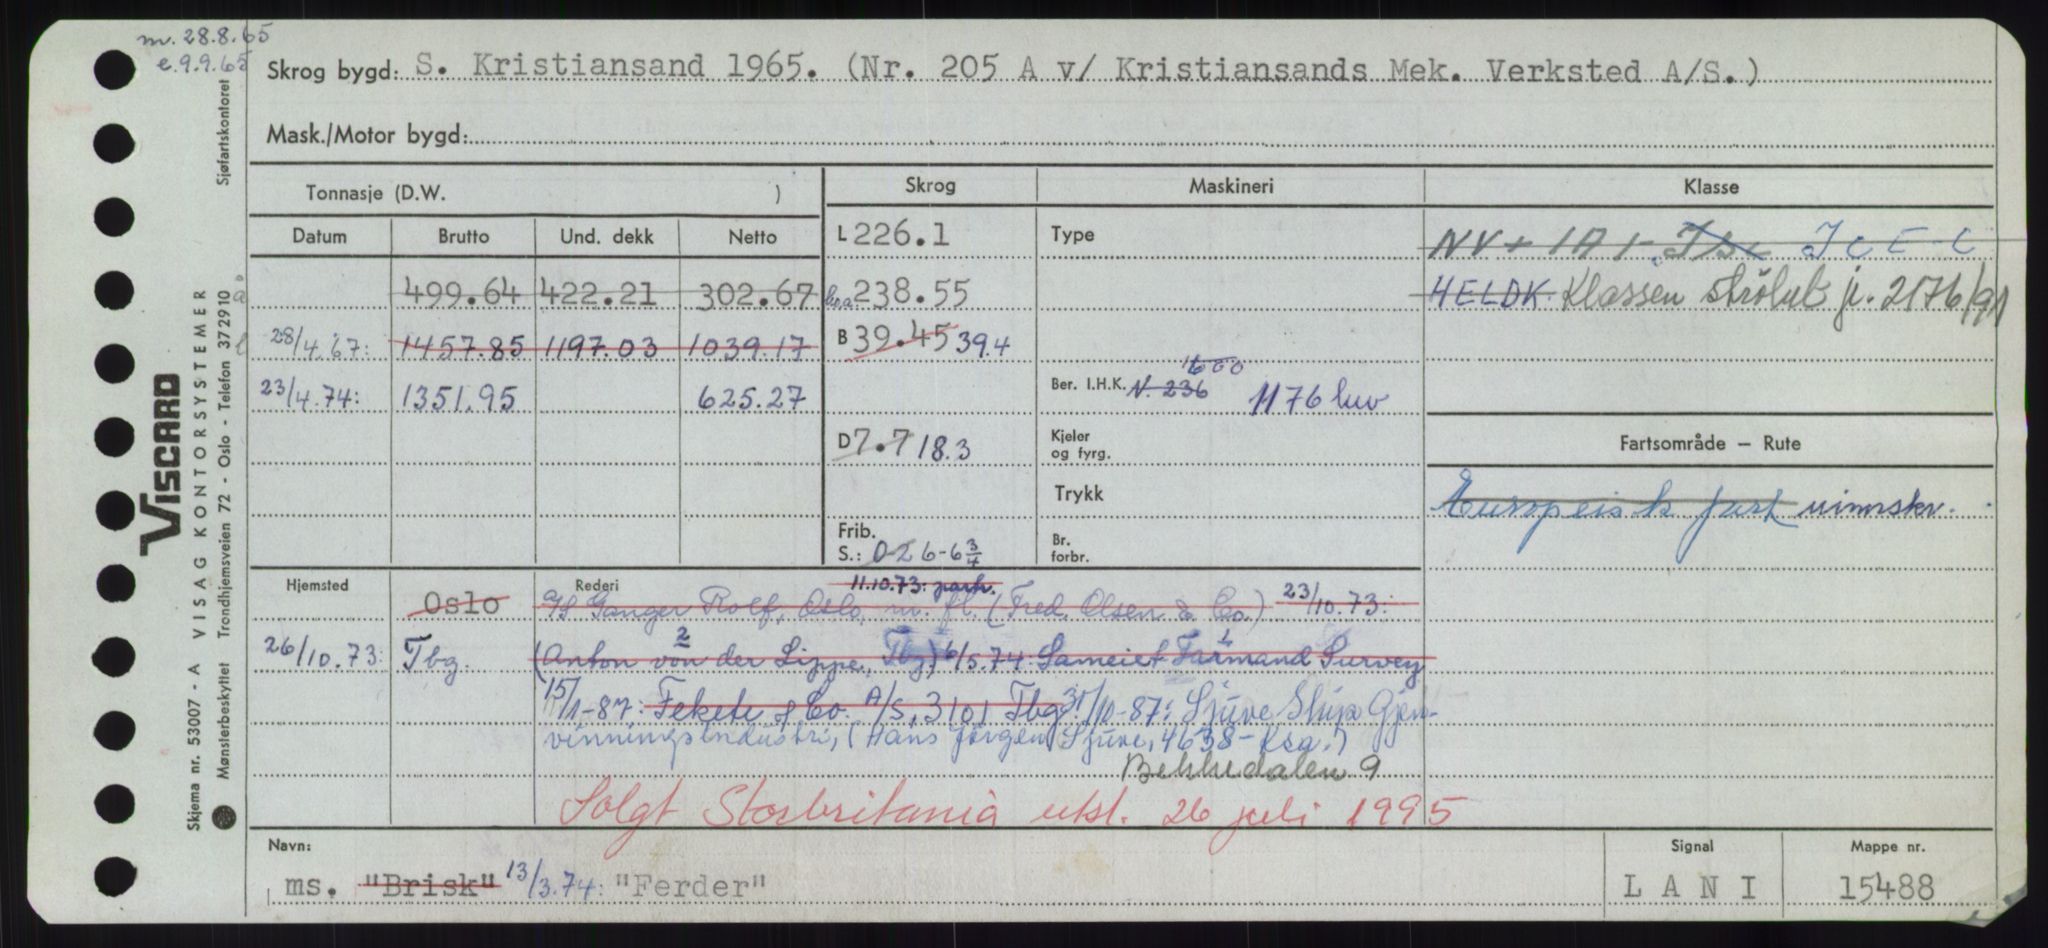 m. 28.8.65
e. 9.9.65
Skrog bygd: S. Kristiansand 1965. (Nr. 205 A v/ Kristiansands Mek. Verksted A/S.)
Mask./Motor bygd:
Tonnasje (D.W. )
Skrog
Maskineri
Klasse
Datum Brutto Und. dekk Netto
L 226.1
Type
NV + 1A1 - ICE-C
499.64 422.21 302.67
l.o.a. 238.55
HELDK. Klassen strøket j. 2176/91
28/4.67: 1457.85 1197.03 1039.17
B 39.45 39.4
23/4.74: 1351.95 625.27
Ber. I.H.K. N. 236 1600 1176 kw
D 7.7 18.3
Kjeler og fyrg.
Fartsområde — Rute
Trykk
Europeisk fart uinnskr.
Frib. S.: 0-26-6 3/4
Br. forbr.
Hjemsted
Rederi
11.10.73: partr.
Oslo A/S Ganger Rolf, Oslo, m. fl. (Fred. Olsen & Co.) 23/10.73:
26/10.73: Tbg. (Anton von der Lippe, Tbg.) 2 6/5.74: Sameiet Farmand Survey 1
15/1-87: Fekete & Co. A/S, 3101 Tbg. 31/10-87: Sjuve Skip Gjen-
vinningsindustri, (Hans Jørgen Sjuve, 4638-Ksa.)
Bekkedalen 9
Solgt Storbritania utsl. 26 juli 1995
Navn:
ms. "Brisk" 13/3.74: "Ferder"
Signal
LANI
Mappe nr.
15488
VISCARD
Skjema nr. 53007 - A VISAG KONTORSYSTEMER
Mønsterbeskyttet Trondhjemsveien 72 - Oslo - Telefon 372910
Sjøfartskontoret